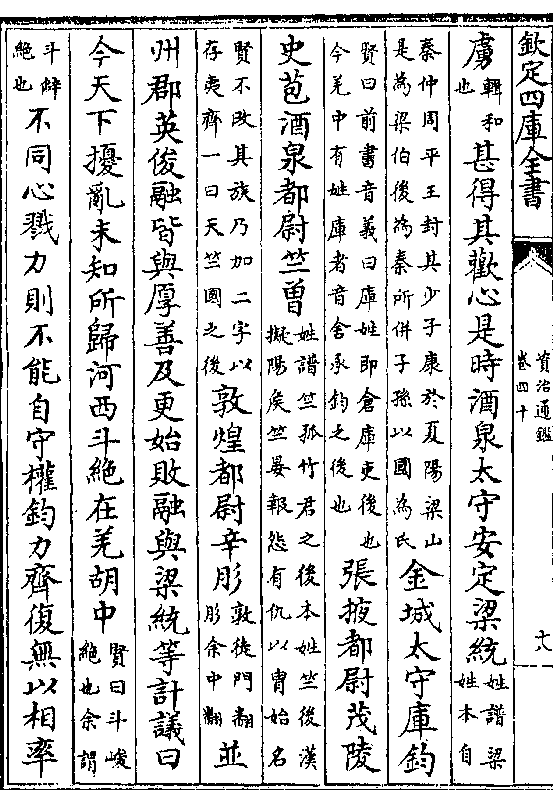 欽定四庫全書
資治通鑑
卷四十
十八
虜輯和也甚得其歡心是時酒泉太守安定梁統姓譜梁姓本自
秦仲周平王封其少子康於夏陽梁山是為梁伯後為秦所併子孫以國為氏金城太守庫鈞
賢曰前書音義曰庫姓即倉庫吏後也今羌中有姓庫者音舍承鈞之後也張掖都尉茂陵
史苞酒泉都尉竺曾姓譜竺孤竹君之後本姓竺後漢擬陽矦竺晏報怨有仇以胄始名
賢不改其族乃加二字以存夷齊一曰天竺國之後敦煌都尉辛肜敦徒門翻肜余中翻並
州郡英俊融皆與厚善及更始敗融與梁統等計議曰
今天下擾亂未知所歸河西斗絶在羌胡中賢曰斗峻絶也余謂
斗僻絶也不同心戮力則不能自守權鈞力齊復無以相率